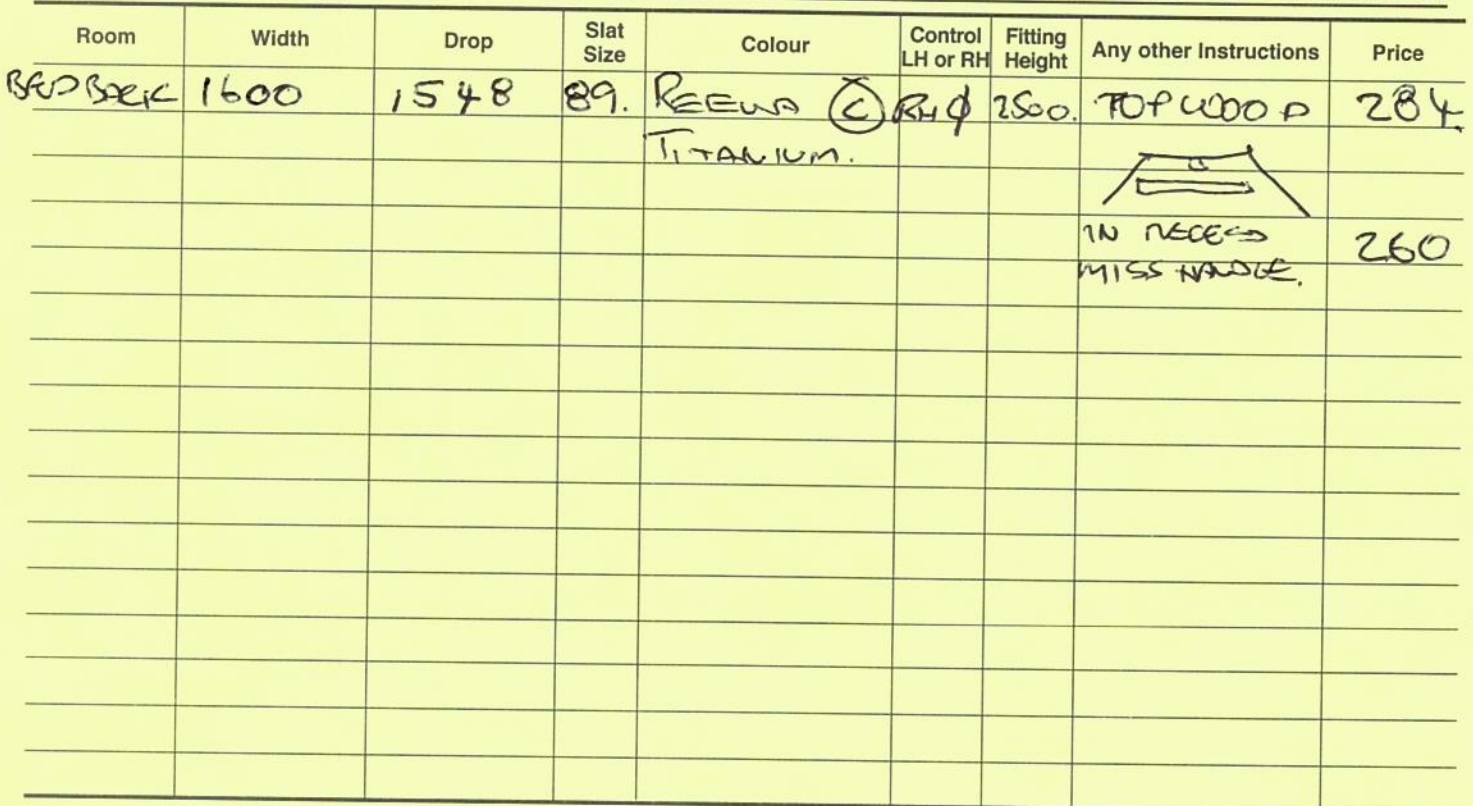 Room Width Drop Slat Size Colour Control LH or RH Fitting Height Any other Instructions Price
BED BACK 1600 1548 89. REEWA C RH 2500. TOP WOOD 284
TITANIUM.
IN RECESS 260
MISS HANDLE.